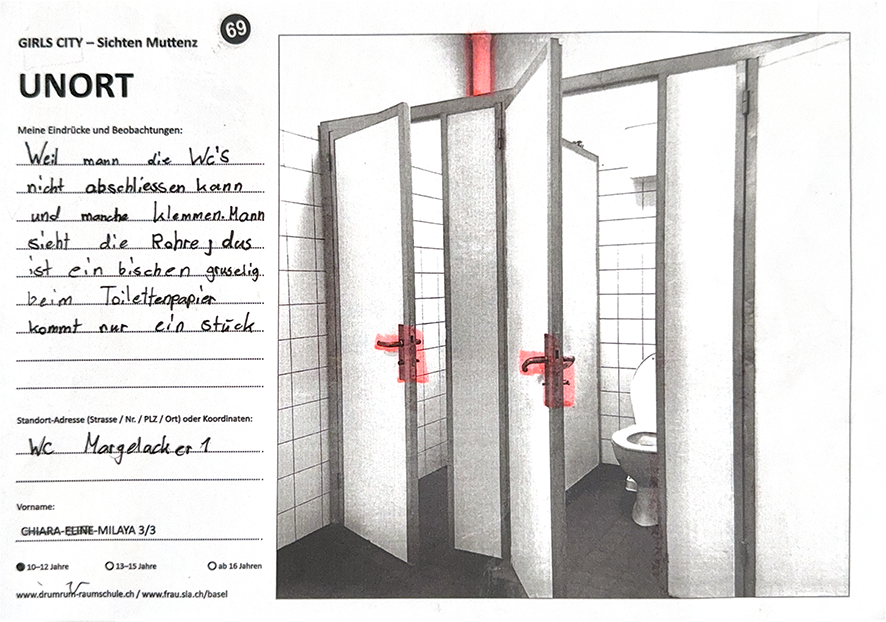 69
GIRLS CITY – Sichten Muttenz
UNORT
Meine Eindrücke und Beobachtungen:
Weil mann die Wc's
nicht abschliessen kann
und manche klemmen. Mann
sieht die Rohre, das
ist ein bischen gruselig.
beim Toilettenpapier
kommt nur ein stück
Standort-Adresse (Strasse / Nr. / PLZ / Ort) oder Koordinaten:
Wc Margelacker 1
Vorname:
CHIARA-ELINE-MILAYA 3/3
10–12 Jahre 13–15 Jahre ab 16 Jahren
www.drumrum-raumschule.ch / www.frau.sia.ch/basel